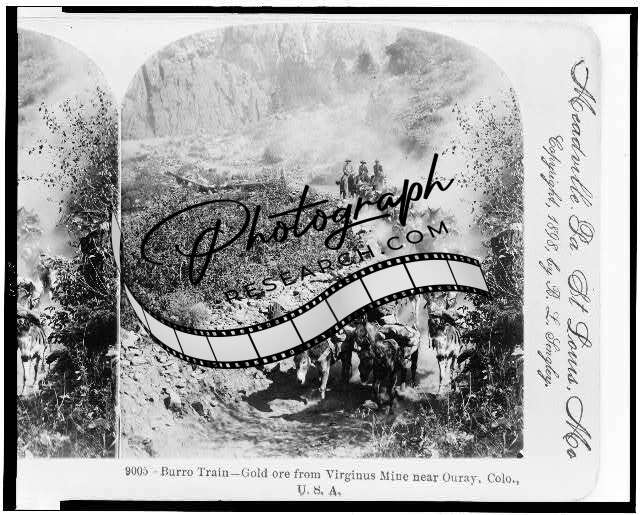 Photograph
RESEARCH.COM
9005 - Burro Train—Gold ore from Virginus Mine near Ouray, Colo.,
U. S. A.
Meadville Pa. St Louis, Mo
Copyright, 1898, by B. L. Singley.